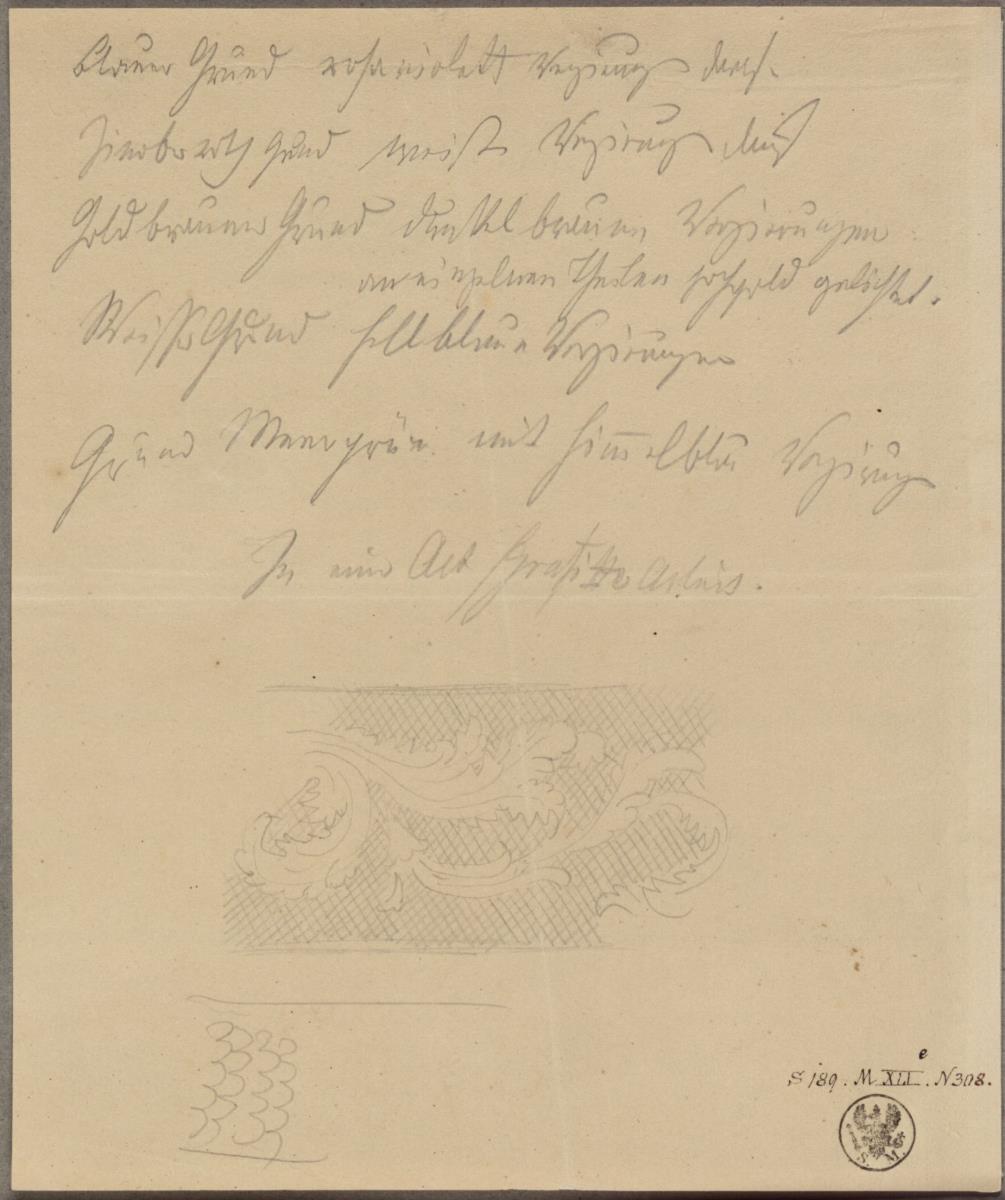 blauer Grund rosaviolett Verzierung darauf.
Zinoberroth Grund weiße Verzierung
Goldbrauner Grund dunkelbraune Verzierungen
an einzelnen Theilen hochgold gelichtet.
Weisser Grund hellblaue Verzierungen
Grund Meergrün mit himmelblau Verzierung
In einer Art Sgrafitto
S 189. M XLI e. N 308.
S. M.